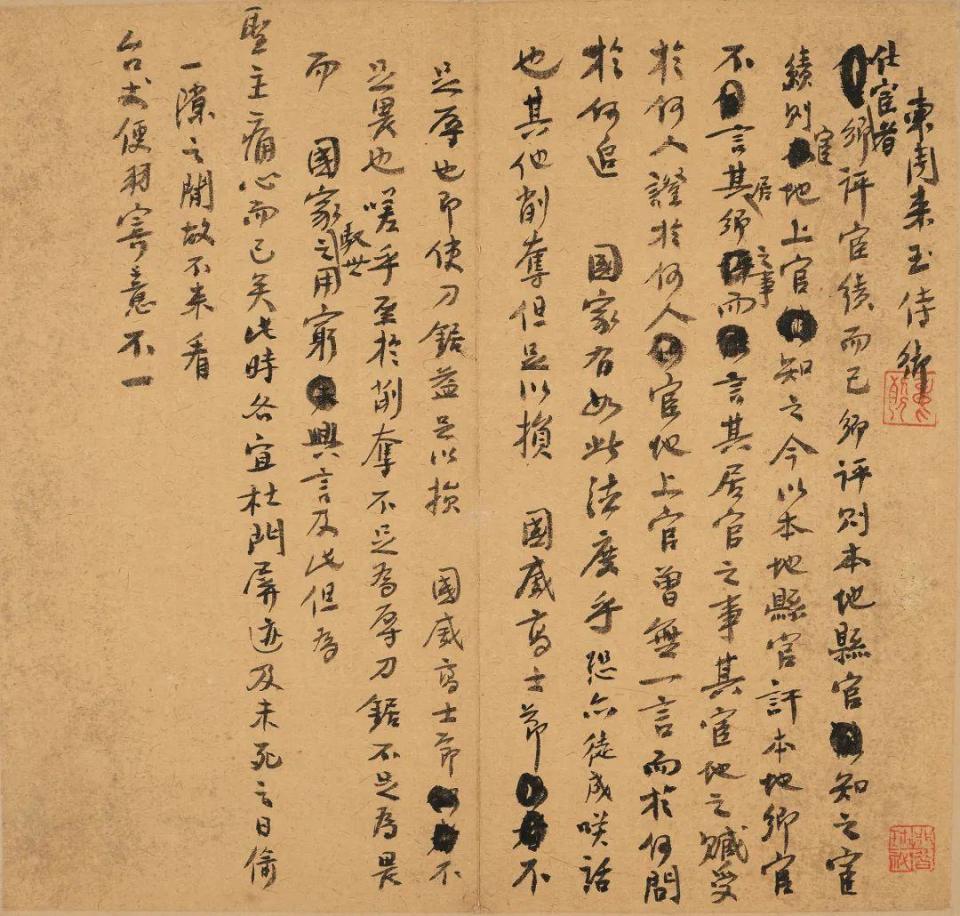 東周来玉侍御
仕宦者
鄉評宦績而已鄉評則本地縣官知之宦
績則宦地上官知之今以本地縣官訐本地鄉官
不言其居鄉之事而言其居官之事其宦地之贓受
於何人證於何人宦地上官曾無一言而於何問
於何追 國家有如此法度乎恐亦徒成咲話
也其他削奪但足以損 國威高士節不
足辱也即使刀鋸益足以損 國威高士節不
足畏也嗟乎至於削奪不足為辱刀鋸不足為畏
而 國家馭世之用窮興言及此但為
聖主痛心而已矣此時各宜杜門屏迹及未死之日偷
一隙之閒故不來看
台丈便羽寄意不一